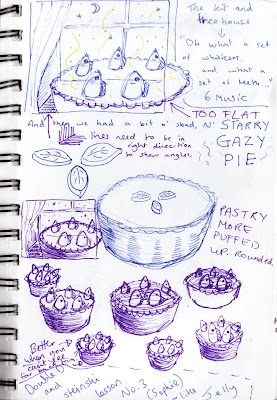 The kit and
the house
"Oh what a
set of
whiskers.
and what a
set of teeth..."
6 Music
TOO FLAT
And then we had a bit o' shad, N' STARRY
GAZY
PIE
lines need to be in
right direction
to show angles.
PASTRY
MORE
PUFFED
UP. Rounded.
Better
when you
cant see
far side
Doubt
and
lesson No. 3 (Sophie) like Jelly